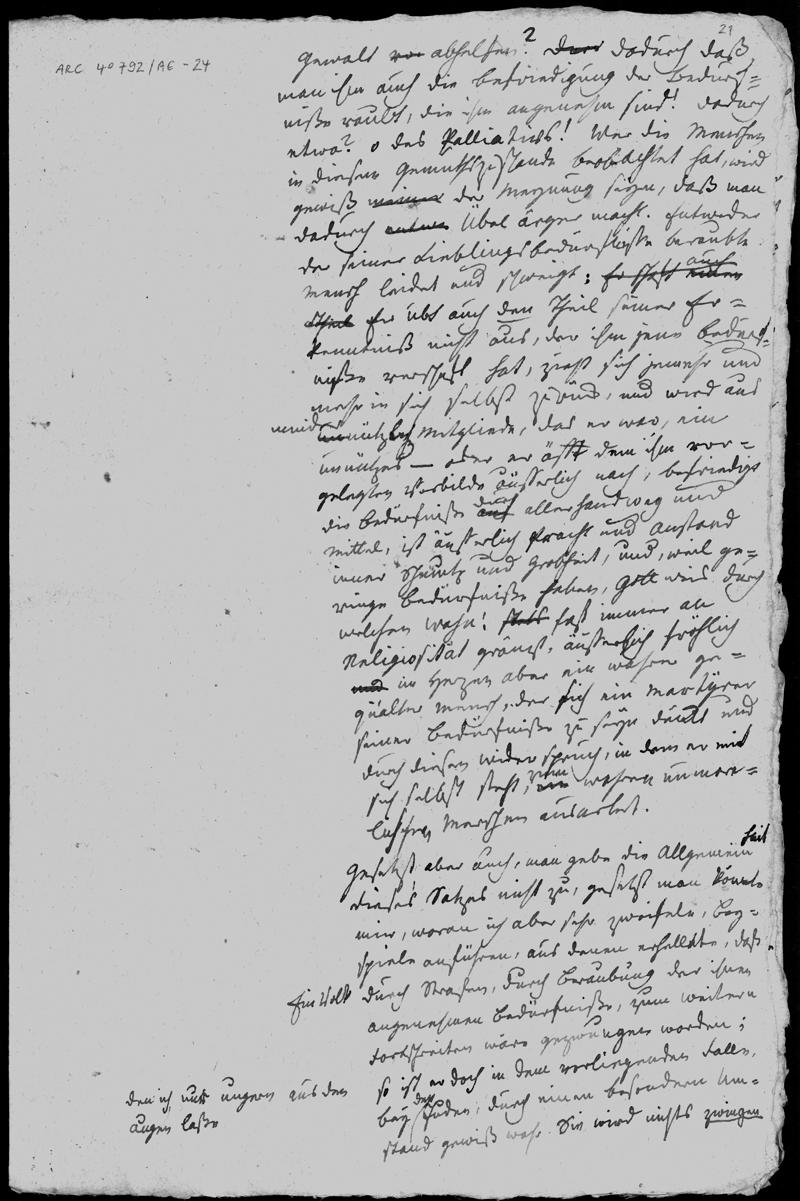 21
ARC 4° 792/A6-24
Gewalt vor abhelfen? Dur dadurch daß
man ihm auch die Befriedigung der Bedürf=
niße raubt, die ihm angenehm sind! dadurch
etwa? o des Palliativs! Wer die Menschen
in diesem Gemüthszustande beobachtet hat, wird
gewiß meiner der Meynung seyn, daß man
dadurch Übel ärger macht. Entweder
der seiner Lieblingsbedürfniße beraubte
Mensch leidet und schweigt; auch
Theil Er übt auch den Theil seiner Er=
kenntniß nicht aus, der ihm jene Bedürf=
niße verschaft hat, zieht sich jemehr und
mehr in sich selbst zurück, und wird aus
minder nützlich Mitgliede, das er war, ein
unnützes — oder er äfft dem ihm vor=
gelegten Vorbilde äusserlich nach, befriedigt
die Bedürfniße auf durch allerhand Weg und
Mittel, ist äusserlich Pracht und Anstand
inner Schmutz und Grobheit, und, weil ge=
ringe Bedürfniße haben, Gott weis durch
welchen Wahn! stets fast immer an
Religiosität gränzt, äusserlich fröhlich
und im Herzen aber ein wahrer ge=
quälter Mensch, der sich ein Martyrer
seiner Bedürfniße zu seyn dünkt und
durch diesen Widerspruch, in dem er mit
sich selbst steht, zum wahren unmora=
lischen Menschen ausartet.
Gesetzt aber auch, man gebe die Allgemeinheit
dieses Satzes nicht zu, gesetzt man könnte
mir, woran ich aber sehr zweifele, Bey=
spiele anführen, aus denen erhellte, daß
Ein Volk durch Strafen, durch Beraubung der ihnen
angenehmen Bedürfniße, zum weitern
Fortschreiten wäre gezwungen worden;
so ist er doch in dem vorliegenden Falle,
bey den Juden, durch einen besondern Um=
stand gewiß wahr. Sie wird nichts zwingen
den ich nur ungern aus den
Augen laße